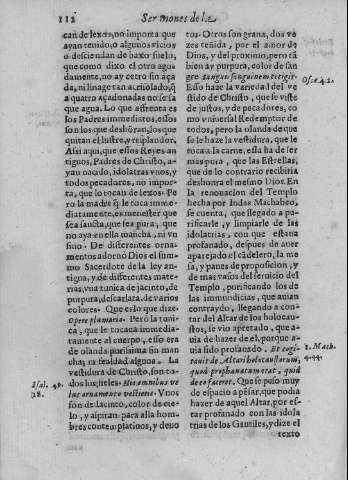 112
Sermones de la
can de lexos, no importa que
ayan tenido, o algunos vicios
o desciendan de baxo suelo,
que como dixo el otro agu
damente, no ay cetro sin aça
da, ni linage tan acrisolado, q̃
a quatro açadonadas no sepa
que agua. Lo que afrenta es
los Padres inmediatos, essos
son los que deshõran, los que
quitan el lustre, y resplandor.
Assi aqui, que essos Reyes an-
tiguos, Padres de Christo, a-
yan nacido, idolatras vnos, y
todos pecadores, no impor-
ta, que lo tocan de lexos. Pe
ro la madre q̃ le toca inme-
diatamente, es menester que
sea sancta, que sea pura, que
no aya en ella mancha, ni vn
sino. De differentes orna-
mentos adornò Dios el sum-
mo Sacerdote de la ley an-
tigua, y de differentes mate-
rias, vna tunica de jacinto, de
purpura, de escarlata, de varios
colores. Que esso que dize
Opere plumario. Pero la tuni-
ca, que le tocaua inmediata-
mente al cuerpo, esso era
de olanda purissima sin man
cha, ni fealdad alguna. La
vestidura de Christo, son to-
dos los fieles. His omnibus ve
lut ornamento vestieris. Vnos
son de Iacinto, color de cie-
lo, y aspiran para alla hom-
bres contemplatiuos, y deuo
Isai. 49.
18.
tos. Otros son grana, dos ve
zes teñida, por el amor de
Dios, y del proximo, pero tã
bien ay purpura, color de san
gre Sanguis sanguinem tetigit.
Esso haze la variedad del ve
stido de Christo, que se viste
de justos, y de pecadores, co
mo vniuersal Redemptor de
todos, pero la olanda de que
se le haze la vestidura, que le
tocaua la carne, essa ha de ser
mas pura, que las Estrellas,
que de lo contrario recibiria
deshonra el mesmo Dios. En
la renouacion del Templo
hecha por Iudas Machabeo,
se cuenta, que llegado a pu-
rificarle, y limpiarle de las
idolatrias, con que estaua
profanado, despues de auer
aparejado el cãdelero, la me
sa, y panes de proposicion, y
de mas vasos del seruicio del
Templo, purificando los de
las immundicias, que auian
contraydo, llegando a con-
tar del Altar de los holocau-
stos, se vio apretado, que a-
uia de hazer de el, porque a-
uia sido profanado. Et cogi-
tauit de Altari holocaustorum,
quod prophanatum erat, quid
de eo faceret. Que se puso muy
de espacio a pẽsar, que podia
hazer de aquel Altar, por es-
tar profanado con las idola
trias de los Gentiles, y dize el
texto
Ose. 4. 2.
1. Mach.
4. 44.